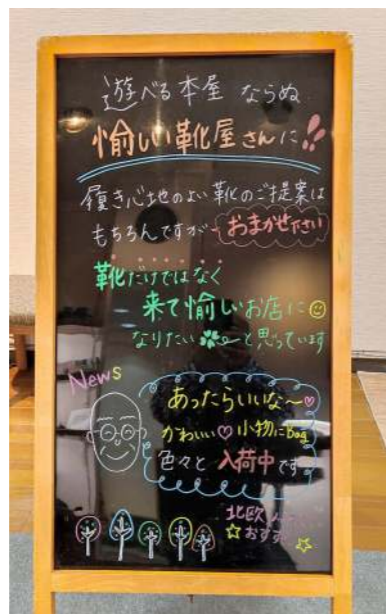 遊べる本屋 ならぬ
愉しい靴屋さんに!!
履き心地のよい靴のご提案は
もちろんですが おまかせ下さい
靴だけではなく
来て愉しいお店に
なりたい と思っています
News
あったらいいな〜♡
かわいい♡小物にBag
色々と 入荷中です
北欧
☆おすす